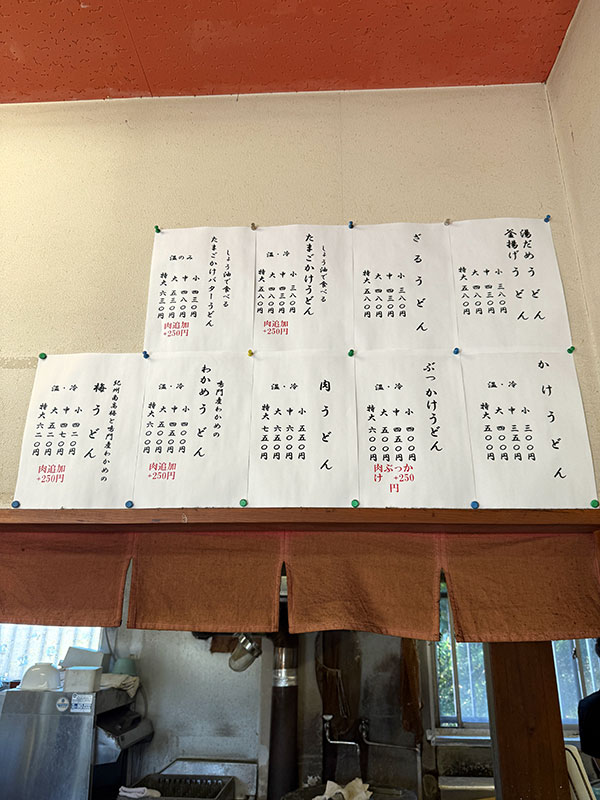 湯だめうどん
釜揚げうどん
小 三八〇円
中 四三〇円
大 四八〇円
特大 五八〇円
ざるうどん
小 三八〇円
中 四三〇円
大 四八〇円
特大 五八〇円
しょう油で食べる
たまごかけうどん
冷・温
小 三八〇円
中 四三〇円
大 四八〇円
特大 五八〇円
肉追加
+250円
しょう油で食べる
たまごかけバターうどん
温のみ
小 四三〇円
中 四八〇円
大 五三〇円
特大 六三〇円
肉追加
+250円
かけうどん
冷・温
小 三〇〇円
中 三五〇円
大 四〇〇円
特大 五〇〇円
ぶっかけうどん
冷・温
小 四〇〇円
中 四五〇円
大 五〇〇円
特大 六〇〇円
肉ぶっか
け +250
円
肉うどん
冷・温
小 五五〇円
中 六〇〇円
大 六五〇円
特大 七五〇円
鳴門産わかめの
わかめうどん
冷・温
小 四〇〇円
中 四五〇円
大 五〇〇円
特大 六〇〇円
肉追加
+250円
紀州南高梅と鳴門産わかめの
梅うどん
冷・温
小 四二〇円
中 四七〇円
大 五二〇円
特大 六二〇円
肉追加
+250円